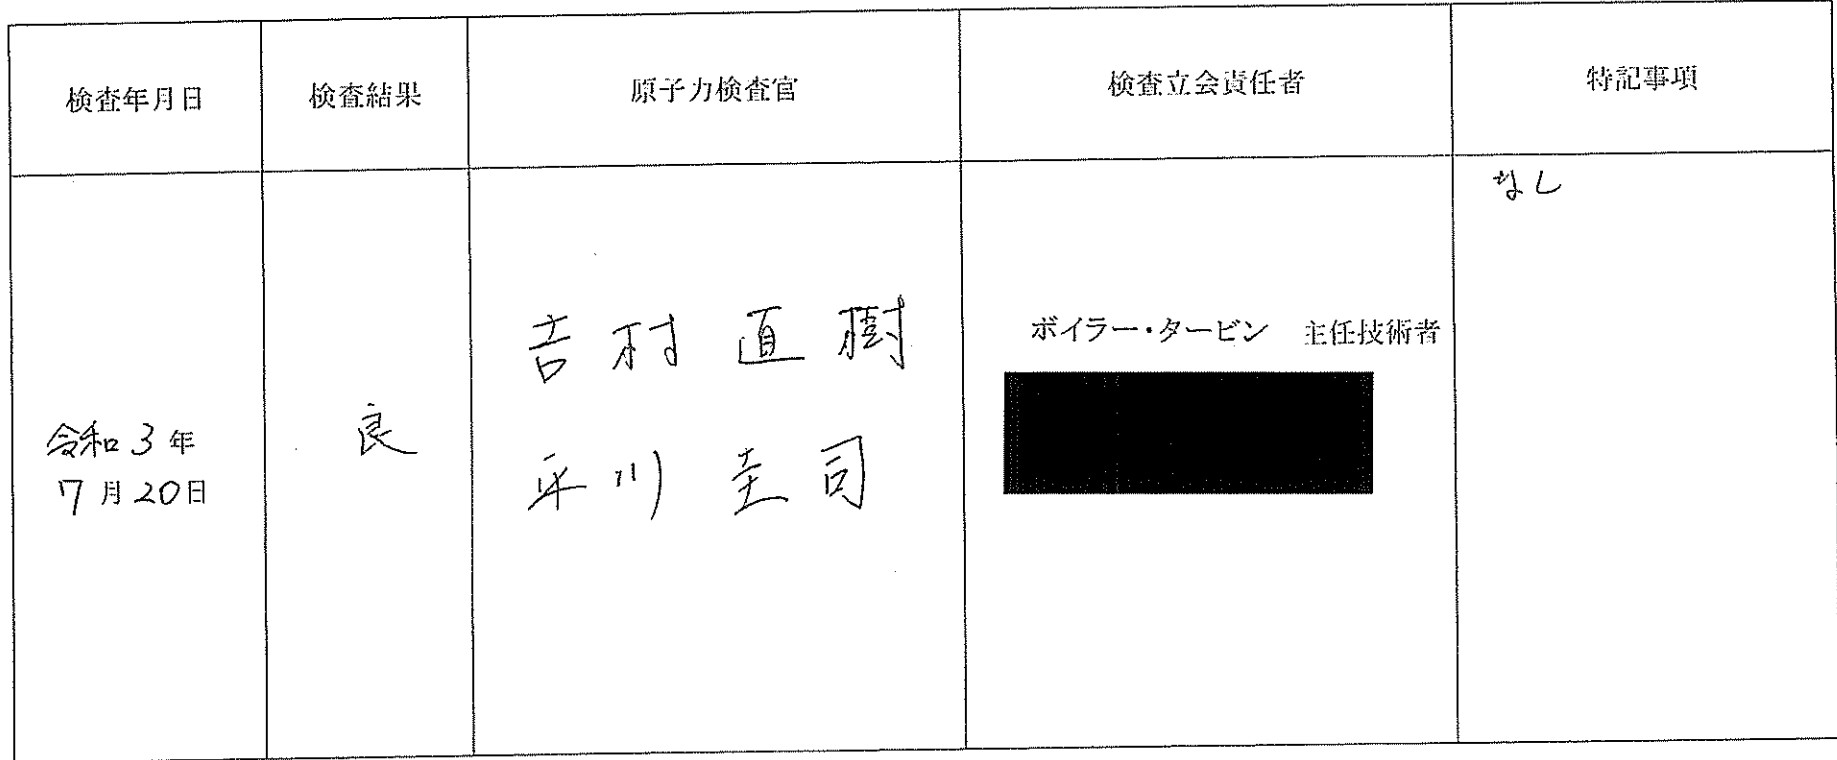 検査年月日
検査結果
原子力検査官
検査立会責任者
特記事項
令和3年
7月20日
良
吉村 直樹
平川 圭司
ボイラー・タービン 主任技術者
なし